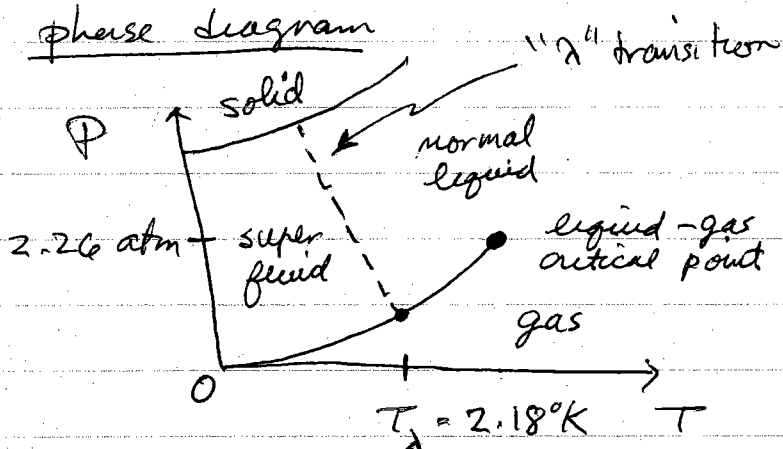 phase diagram
"λ" transition
solid
P
normal
liquid
2.26 atm
super
fluid
liquid-gas
critical point
gas
O
T_λ = 2.18°K
T